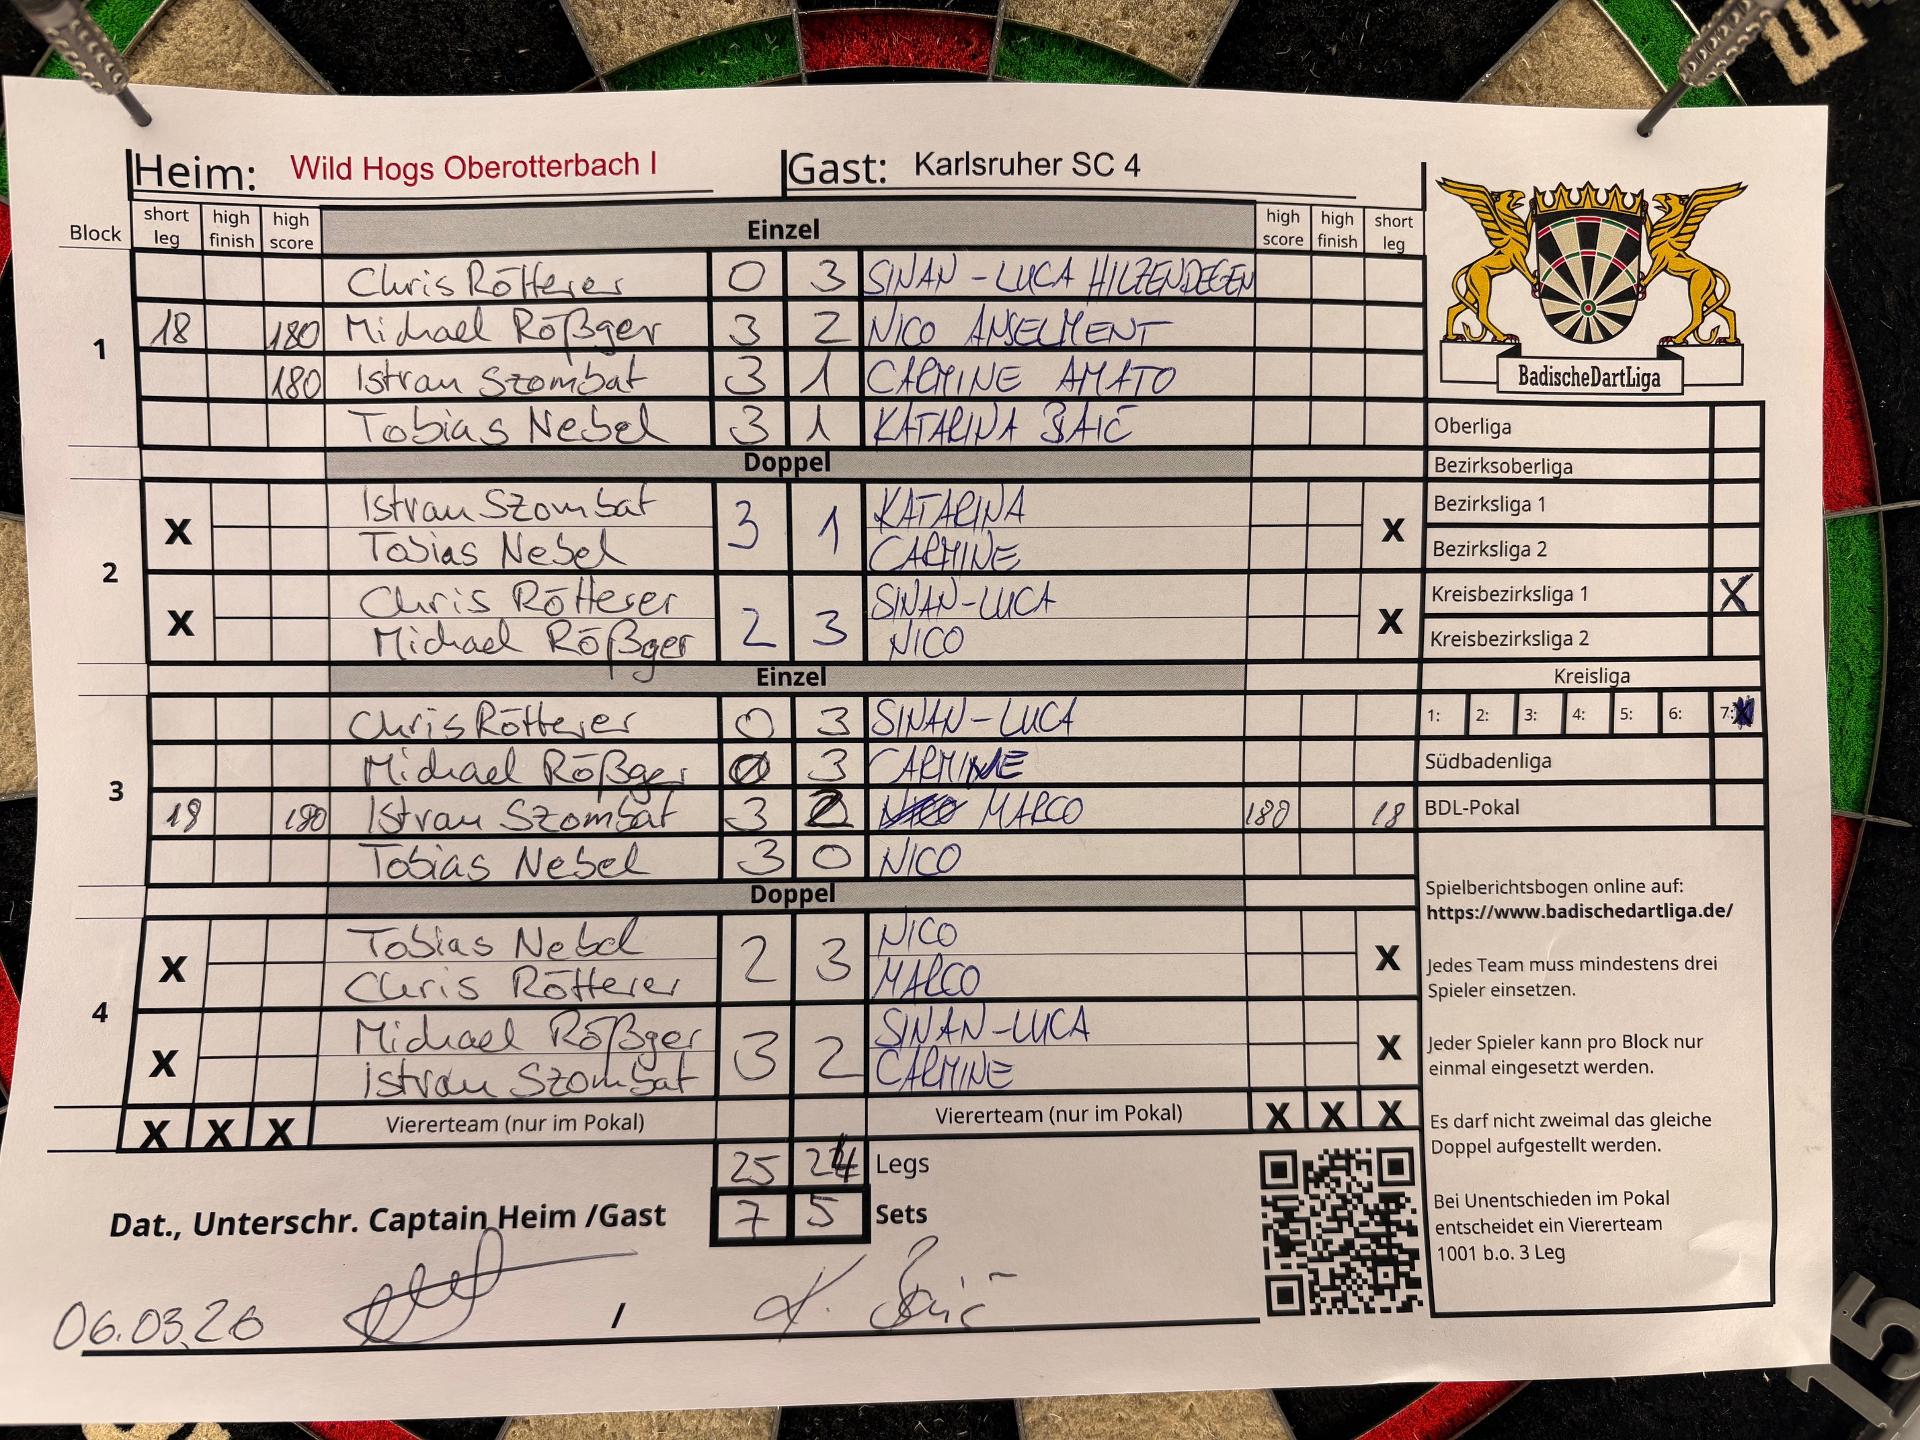 Heim: Wild Hogs Oberotterbach I Gast: Karlsruher SC 4
Block short leg high finish high score Einzel high score high finish short leg
1
Chris Rötterer 0 3 SINAN-LUCA HILZENDEGEN
18 180 Michael Rößger 3 2 NICO ANSELMENT
180 Istvan Szombat 3 1 CARMINE AMATO
Tobias Nebel 3 1 KATARINA BAIĆ
Doppel
2
X Istvan Szombat 3 1 KATARINA X
Tobias Nebel CARMINE
X Chris Rötterer 2 3 SINAN-LUCA X
Michael Rößger NICO
Einzel
3
Chris Rötterer 0 3 SINAN-LUCA
Michael Rößger 0 3 CARMINE
18 180 Istvan Szombat 3 2 MARCO 180 18
Tobias Nebel 3 0 NICO
Doppel
4
X Tobias Nebel 2 3 NICO X
Chris Rötterer MARCO
X Michael Rößger 3 2 SINAN-LUCA X
Istvan Szombat CARMINE
X X X Viererteam (nur im Pokal) Viererteam (nur im Pokal) X X X
25 24 Legs
Dat., Unterschr. Captain Heim /Gast 7 5 Sets
06.03.26 / K. Baić
BadischeDartLiga
Oberliga
Bezirksoberliga
Bezirksliga 1
Bezirksliga 2
Kreisbezirksliga 1 X
Kreisbezirksliga 2
Kreisliga
1: 2: 3: 4: 5: 6: 7:
Südbadenliga
BDL-Pokal
Spielberichtsbogen online auf:
https://www.badischedartliga.de/
Jedes Team muss mindestens drei
Spieler einsetzen.
Jeder Spieler kann pro Block nur
einmal eingesetzt werden.
Es darf nicht zweimal das gleiche
Doppel aufgestellt werden.
Bei Unentschieden im Pokal
entscheidet ein Viererteam
1001 b.o. 3 Leg
15